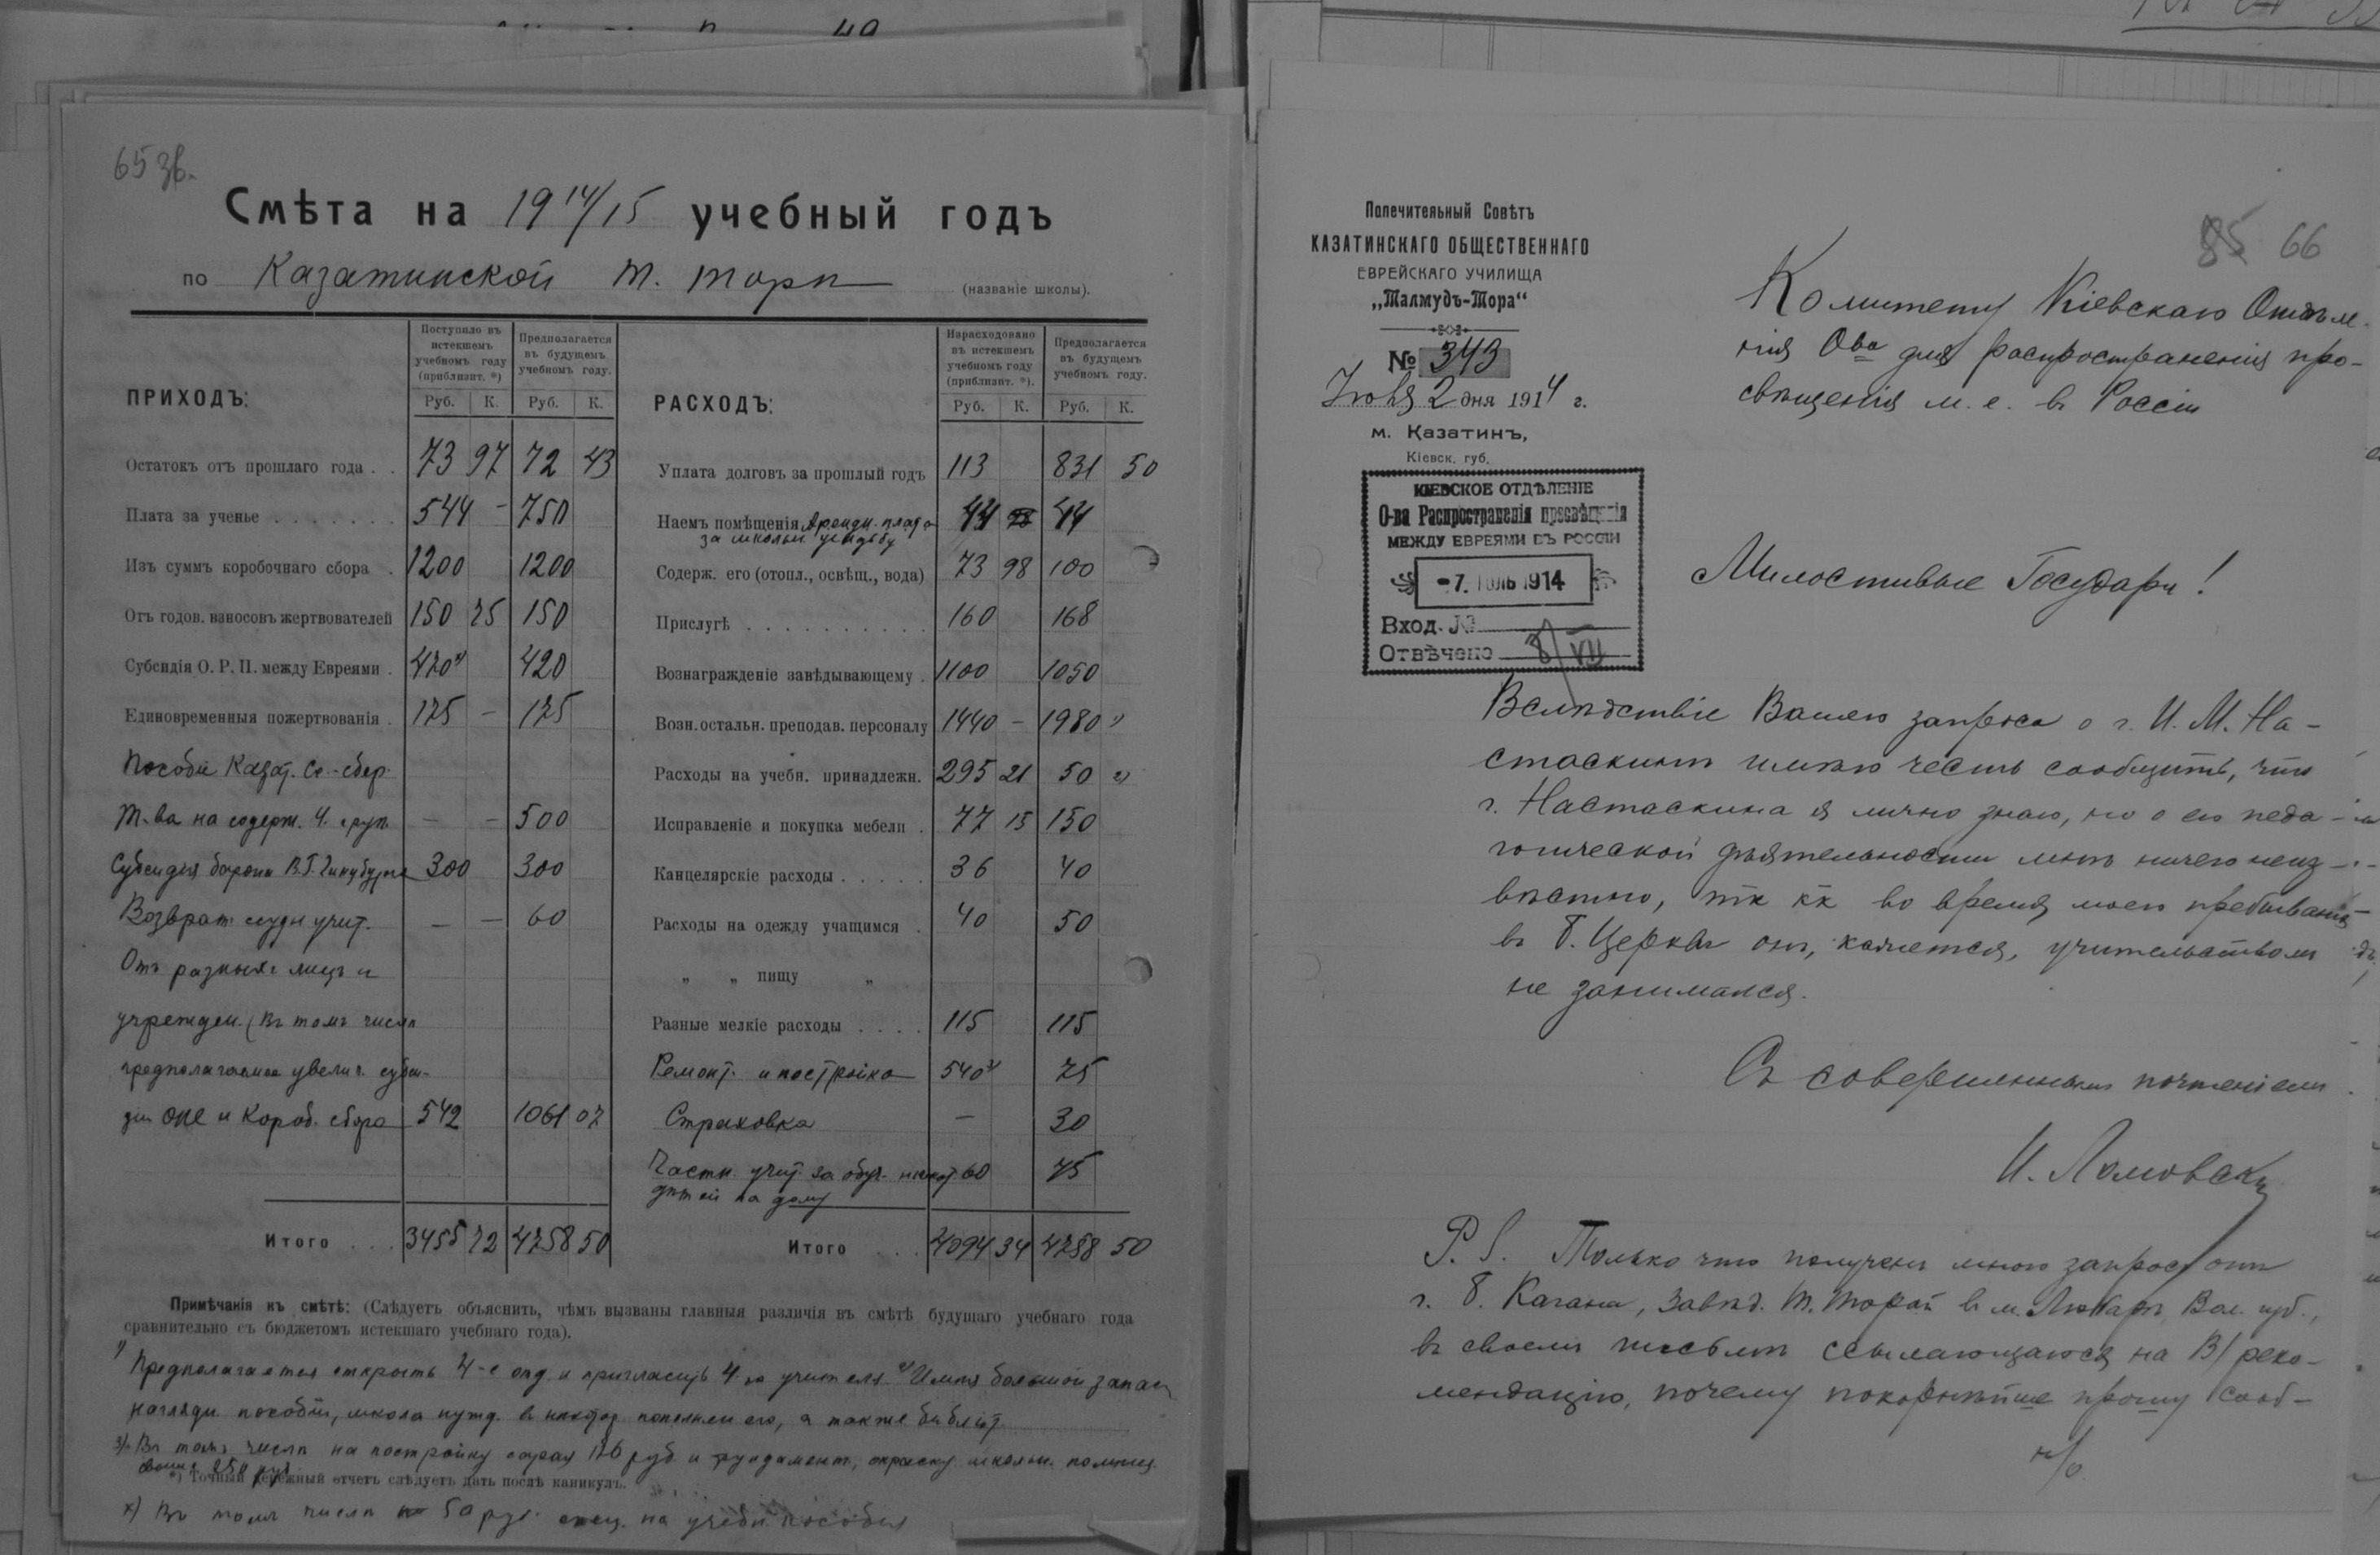 65 зв.
Смѣта на 1914/15 учебный годъ
по Казатинской Т. Торѣ (названіе школы).
ПРИХОДЪ: Поступило въ истекшемъ учебномъ году (приблизит. *) Руб. К. Предполагается въ будущемъ учебномъ году. Руб. К.
Остатокъ отъ прошлаго года . . 73 97 72 43
Плата за ученье . . . . . . . 544 - 750
Изъ суммъ коробочнаго сбора . 1200 1200
Отъ годов. взносовъ жертвователей 150 25 150
Субсидія О. Р. П. между Евреями . 420 х) 420
Единовременныя пожертвованія . 175 - 175
Пособіе Казат. Сс.-сбер.
Т-ва на содерж. 4. груп. - - 500
Субсидія барона В.Г. Гинцбурга 300 300
Возврат ссуды учит. - - 60
Отъ разныхъ лицъ и
учрежден. (Въ томъ числѣ
предполагаемое увелич. субси-
діи ОПЕ и Короб. сбора 542 1061 07
Итого . . . 3455 72 4758 50
РАСХОДЪ: Израсходовано въ истекшемъ учебномъ году (приблизит. *). Руб. К. Предполагается въ будущемъ учебномъ году. Руб. К.
Уплата долговъ за прошлый годъ 113 831 50
Наемъ помѣщенія Арендн. плата 44 44
за школьн. усадьбу
Содерж. его (отопл., освѣщ., вода) 73 98 100
Прислугѣ . . . . . . . . . . 160 168
Вознагражденіе завѣдывающему . 1100 1050
Возн. остальн. преподав. персоналу 1440 - 1980 1)
Расходы на учебн. принадлежн. 295 21 50 2)
Исправленіе и покупка мебели . 77 15 150
Канцелярскіе расходы . . . . . 36 40
Расходы на одежду учащимся . 40 50
„ „ пищу „
Разные мелкіе расходы . . . . 115 115
Ремонт. и постройка 540 3) 75
Страховка - 30
Частн. учит. за обуч. нѣкот. 60 75
дѣтей на дому
Итого . . . 4094 34 4758 50
Примѣчанія къ смѣтѣ: (Слѣдуетъ объяснить, чѣмъ вызваны главныя различія въ смѣтѣ будущаго учебнаго года
сравнительно съ бюджетомъ истекшаго учебнаго года).
1) Предполагается открыть 4-е отд. и пригласить 4-го учителя. 2) Имѣя большой запас
наглядн. пособій, школа нужд. в нѣкотор. пополнен. его, а также библіот.
3). Въ томъ числѣ на постройку сарая 126 руб. и фундамент, окраску школьн. помѣщ.
свыше 250 руб.
*) Точный денежный отчетъ слѣдуетъ дать послѣ каникулъ.
х) Въ томъ числѣ 50 руб. спец. на учебн. пособія
85 66
Попечительный Совѣтъ
КАЗАТИНСКАГО ОБЩЕСТВЕННАГО
ЕВРЕЙСКАГО УЧИЛИЩА
„Талмудъ-Тора“
№ 343
Іюля 2 дня 1914 г.
м. Казатинъ,
Кіевск. губ.
КІЕВСКОЕ ОТДѢЛЕНІЕ
О-ва Распространенія просвѣщенія
МЕЖДУ ЕВРЕЯМИ ВЪ РОССІИ
-7. ІЮЛЬ 1914
Вход. №
Отвѣчено 8/VII
Комитету Кіевскаго Отдѣле-
нія Ова для распространенія про-
свѣщенія м. е. въ Россіи
Милостивые Государи!
Вслѣдствіе Вашего запроса о г. И. М. На-
стаскинѣ имѣю честь сообщить, что
г. Настаскина я лично знаю, но о его педа-
гогической дѣятельности мнѣ ничего неиз-
вѣстно, тк кк во время моего пребыванія
въ Б. Церкви он, кажется, учительством
не занимался.
Съ совершеннымъ почтеніемъ
И. Ломовскій
P. S. Только что получен мною запрос от
г. Б. Кагана, завѣд. Т. Торой в м. Любарѣ, Вол. губ.,
въ своем письмѣ ссылающагося на В/ реко-
мендацію, почему покорнѣйше прошу сооб-
н/о.